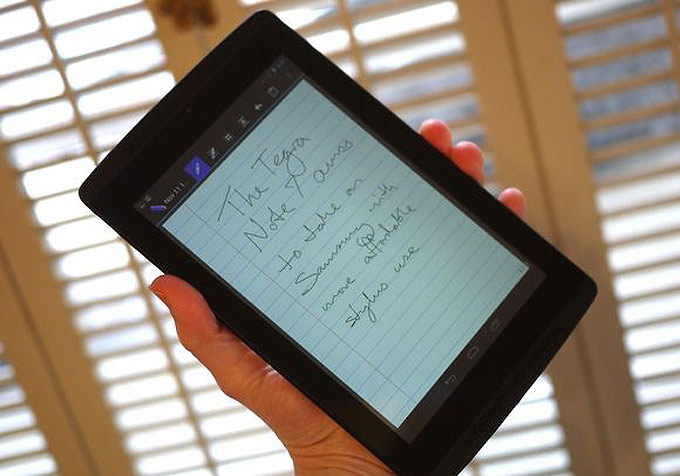 Nov 11 1...
The Tegra
Note 7 aims
to take on
Samsung with
more affordable
stylus use